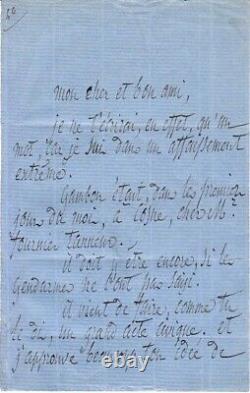 mon cher et bon ami,
je ne t'écrirai, en effet, qu'un
mot, car je suis dans un affaissement
extrême.
Gambon était, dans les premiers
jours du mois, à Cosne, chez Mr.
fournier tanneur.
il doit y être encore, si les
gendarmes ne l'ont pas saisi.
il vient de faire, comme tu
le dis, un grand acte civique. et
j'approuve beaucoup ton idée de